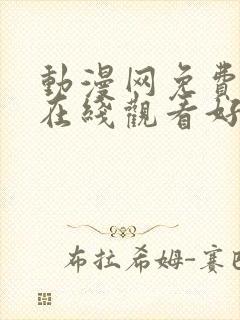 動漫网免費
在綫觀看好
布拉希姆-賽巴